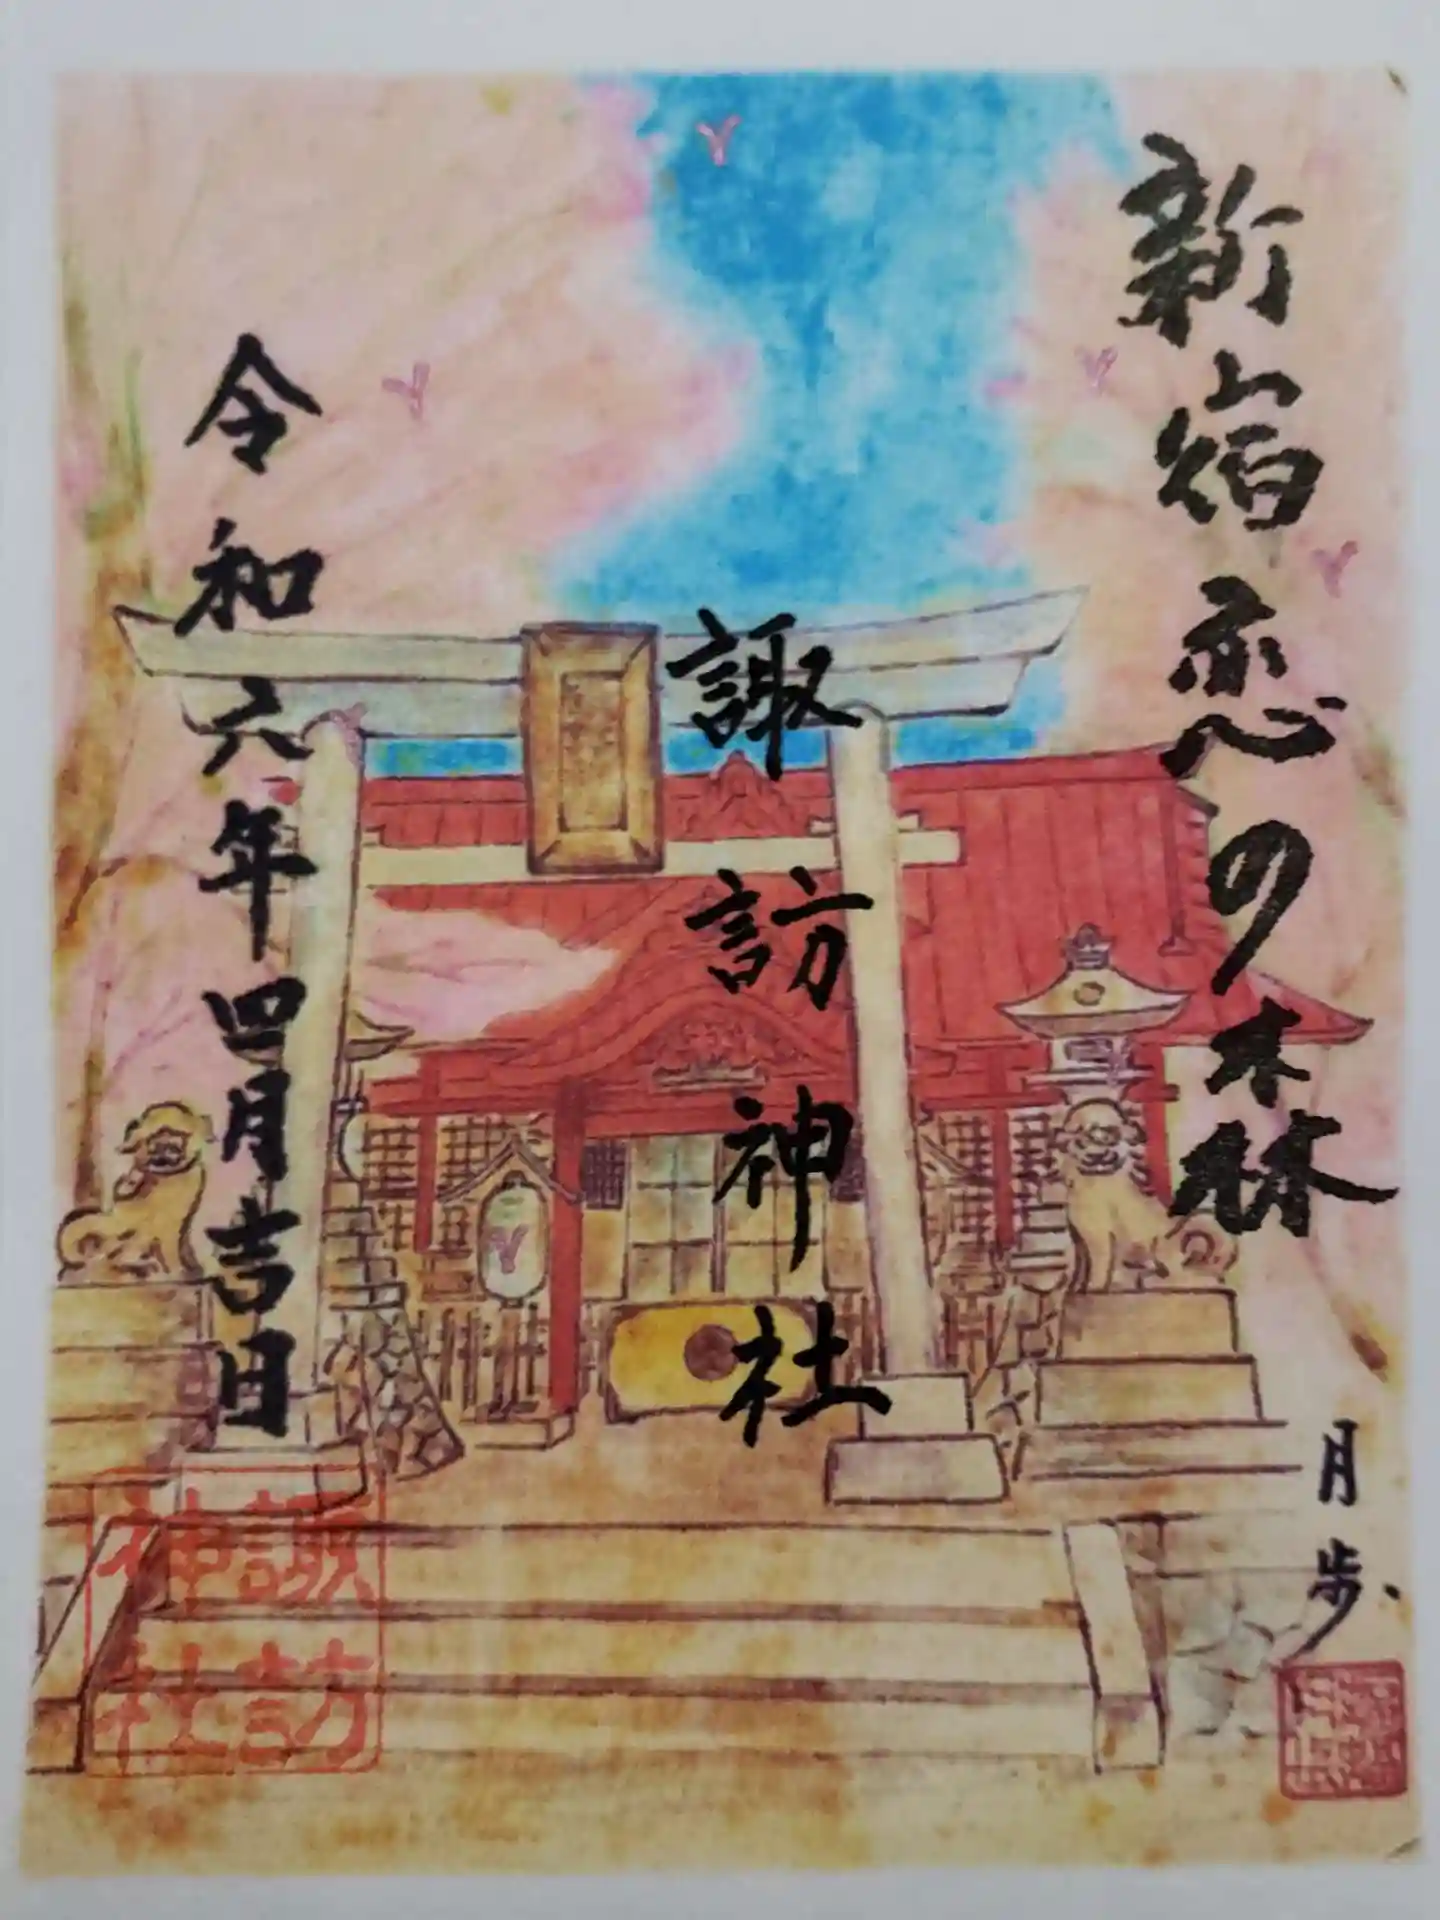 新宿恋の森
諏訪神社
令和六年四月吉日
月歩
諏訪
神社